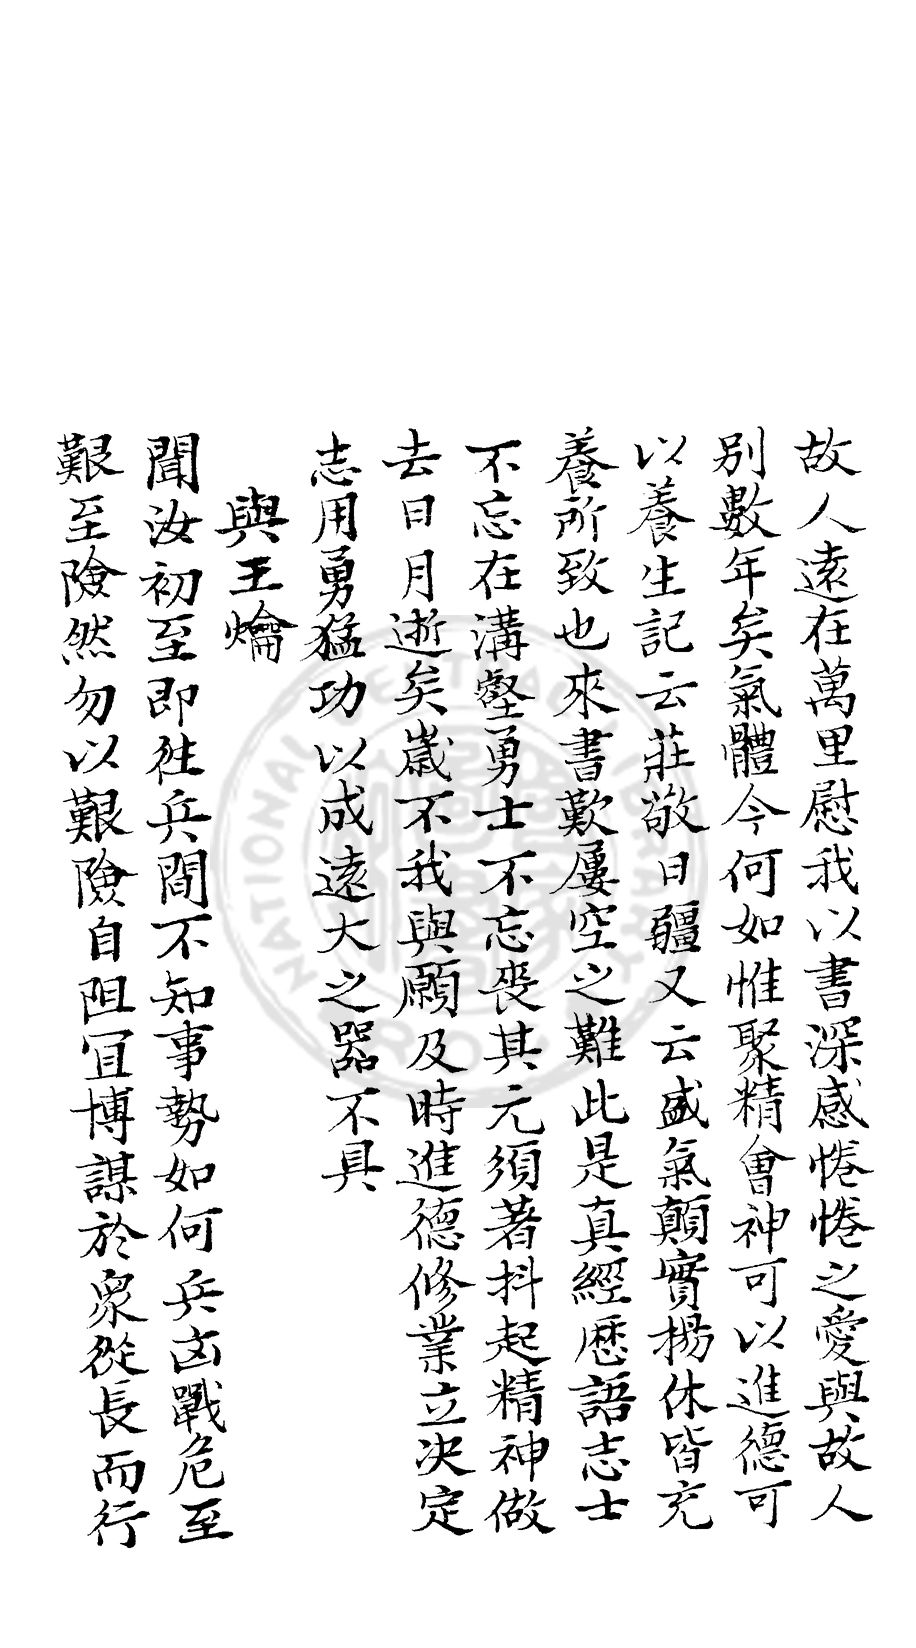 故人遠在萬里慰我以書深感惓惓之愛與故人
別數年矣氣體今何如惟聚精會神可以進德可
以養生記云莊敬日疆又云盛氣顛實揚休皆充
養所致也來書歎屢空之難此是真經歷語志士
不忘在溝壑勇士不忘喪其元須著抖起精神做
去日月逝矣歲不我與願及時進德修業立決定
志用勇猛功以成遠大之器不具
與王爚
聞汝初至即往兵間不知事勢如何兵凶戰危至
艱至險然勿以艱險自阻宜博謀於眾從長而行
NATIONAL CENTRAL LIBRARY